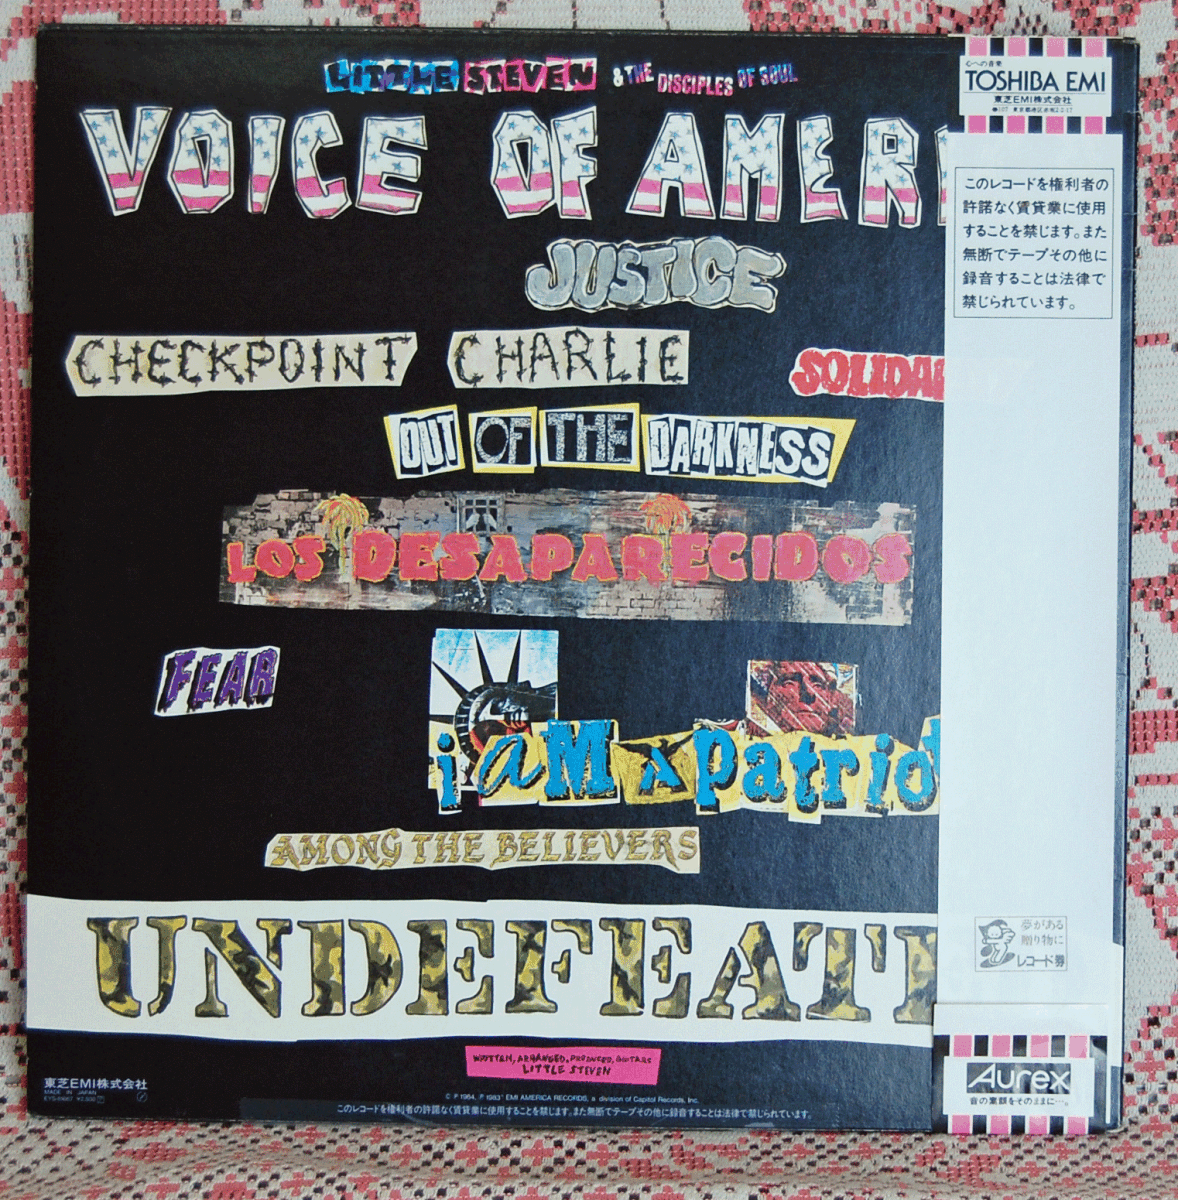 LITTLE STEVEN & THE DISCIPLES OF SOUL
VOICE OF AMERI
JUSTICE
CHECKPOINT CHARLIE
SOLIDAR
OUT OF THE DARKNESS
LOS DESAPARECIDOS
FEAR
i aM A patriot
AMONG THE BELIEVERS
UNDEFEATE
WRITTEN, ARRANGED, PRODUCED, GUITARS
LITTLE STEVEN
東芝EMI株式会社
MADE IN JAPAN
© P 1984, P 1983* EMI AMERICA RECORDS, a division of Capitol Records, Inc.
このレコードを権利者の許諾なく賃貸業に使用することを禁じます。また無断でテープその他に録音することは法律で禁じられています。
心への音楽
TOSHIBA EMI
東芝EMI株式会社
●107 東京都港区赤坂2-2-17
このレコードを権利者の
許諾なく賃貸業に使用
することを禁じます。また
無断でテープその他に
録音することは法律で
禁じられています。
夢がある
贈り物に
レコード券
Aurex
音の素顔をそのままに…。